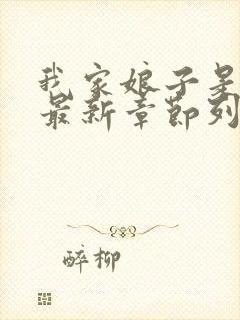 我家娘子是
最新章节列
醉柳